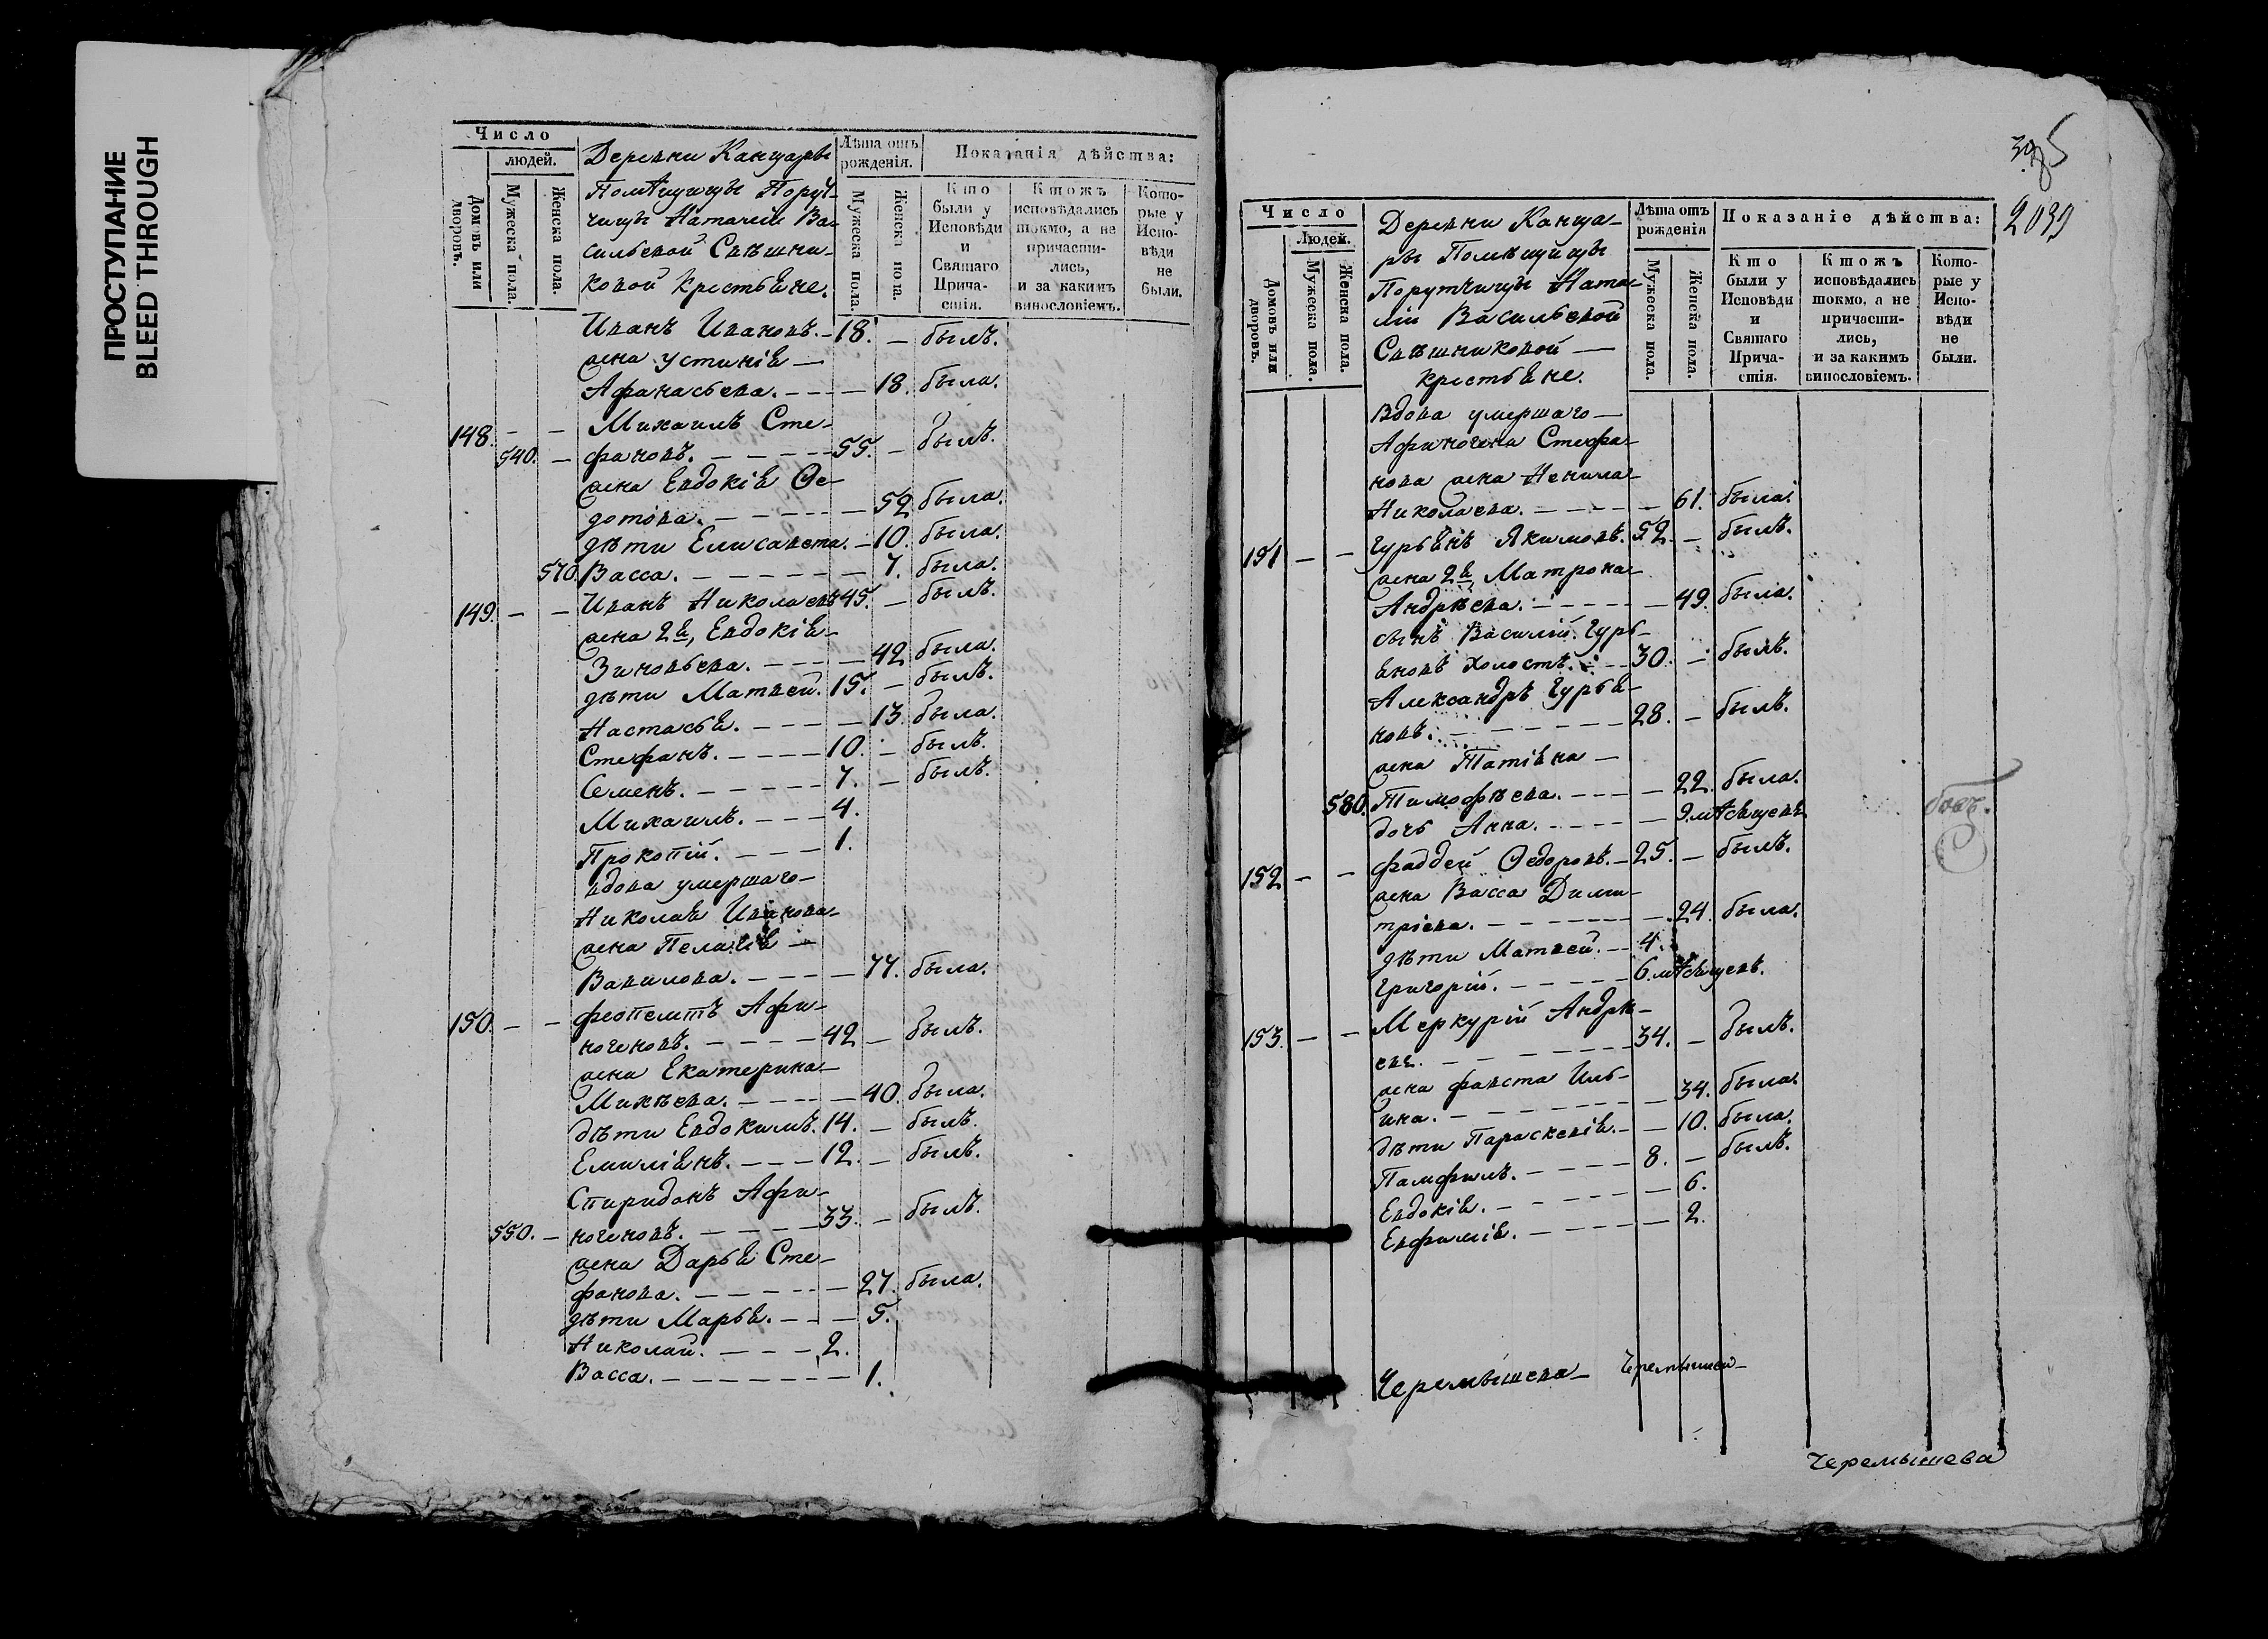 ПРОСТУПАНИЕ
BLEED THROUGH
Число
людей.
Домовъ или дворовъ.
Мужеска пола.
Женска пола.
Деревни Канщары
Помѣщицы Порут-
чицы Наталіи Ва-
сильевой Свѣшни-
ковой крестьяне.
Лѣта отъ рожденія.
Мужеска пола.
Женска пола.
Показанія дѣйства:
Кто были у Исповѣди и Святаго Прича-стія.
Ктожъ исповѣдались токмо, а не причасти-лись, и за какимъ винословіемъ.
Кото-рые у Испо-вѣди не были.
Иванъ Ивановъ. 18. — былъ.
жена Устинія —
Афанасьева. — 18. была.
148. — — Михаилъ Сте-
540. — фановъ. — 55. — былъ.
жена Евдокія Ѳе-
дотова. — 52 была.
дѣти Елисавета. — 10. была.
570. Васса. — 7. была.
149. — — Иванъ Николаевъ 45. — былъ.
жена 2я, Евдокія
Зиновьева. — 42 была.
дѣти Матвей. 15. — былъ.
Настасья. — 13. была.
Стефанъ. — 10. — былъ.
Семенъ. — 7. — былъ.
Михаилъ. — 4.
Прокопій. — 1.
вдова умершаго
Николая Иванова
жена Пелагія —
Вавилова. — 77. была.
150. — — Феопемптъ Афи-
ногеновъ. — 42 — былъ.
жена Екатерина
Михѣева. — 40. была.
дѣти Евдокимъ. 14. — былъ.
Емиліянъ. — 12. — былъ.
Спиридонъ Афи-
550. — ногеновъ. — 33. — былъ.
жена Дарья Сте-
фанова. — 27. была.
дѣти Марья. — 5.
Николай. — 2.
Васса. — 1.
2039
Число
Людей.
Домовъ или дворовъ.
Мужеска пола.
Женска пола.
Деревни Канща-
ры Помѣщицы
Порутчицы Ната-
ліи Васильевой
Свѣшниковой —
крестьяне.
Лѣта отъ рожденія
Мужеска пола.
Женска пола.
Показаніе дѣйства:
Кто были у Исповѣди и Святаго Прича-стія.
Ктожъ исповѣдались токмо, а не причасти-лись, и за какимъ винословіемъ.
Кото-рые у Испо-вѣди не были.
Вдова умершаго —
Афиногена Стефа-
нова жена Ненила
Николаева. — 61. была.
151 — — Гурьянъ Якимовъ. 52. — былъ.
жена 2я, Матрона
Андрѣева. — 49. была.
сынъ Василій Гурь-
яновъ холостъ. — 30. — былъ.
Александръ Гурья-
новъ. — 28. — былъ.
жена Татіяна —
580. Тимофѣева. — 22. была.
дочь Анна. — 9. мѣсяцевъ
152 — — Фаддей Ѳедоровъ. — 25. — былъ.
жена Васса Дими-
тріева. — 24. была.
дѣти Матвей. — 4.
Григорій. — 6. мѣсяцевъ.
153. — — Меркурій Андрѣ-
евъ. — 34. — былъ.
жена Фавста Иль-
ина. — 34. была.
дѣти Параскевія. — 10. была.
Памфилъ. — 8. — былъ.
Евдокія. — 6.
Евфимія. — 2.
Черемышева
Черемышева